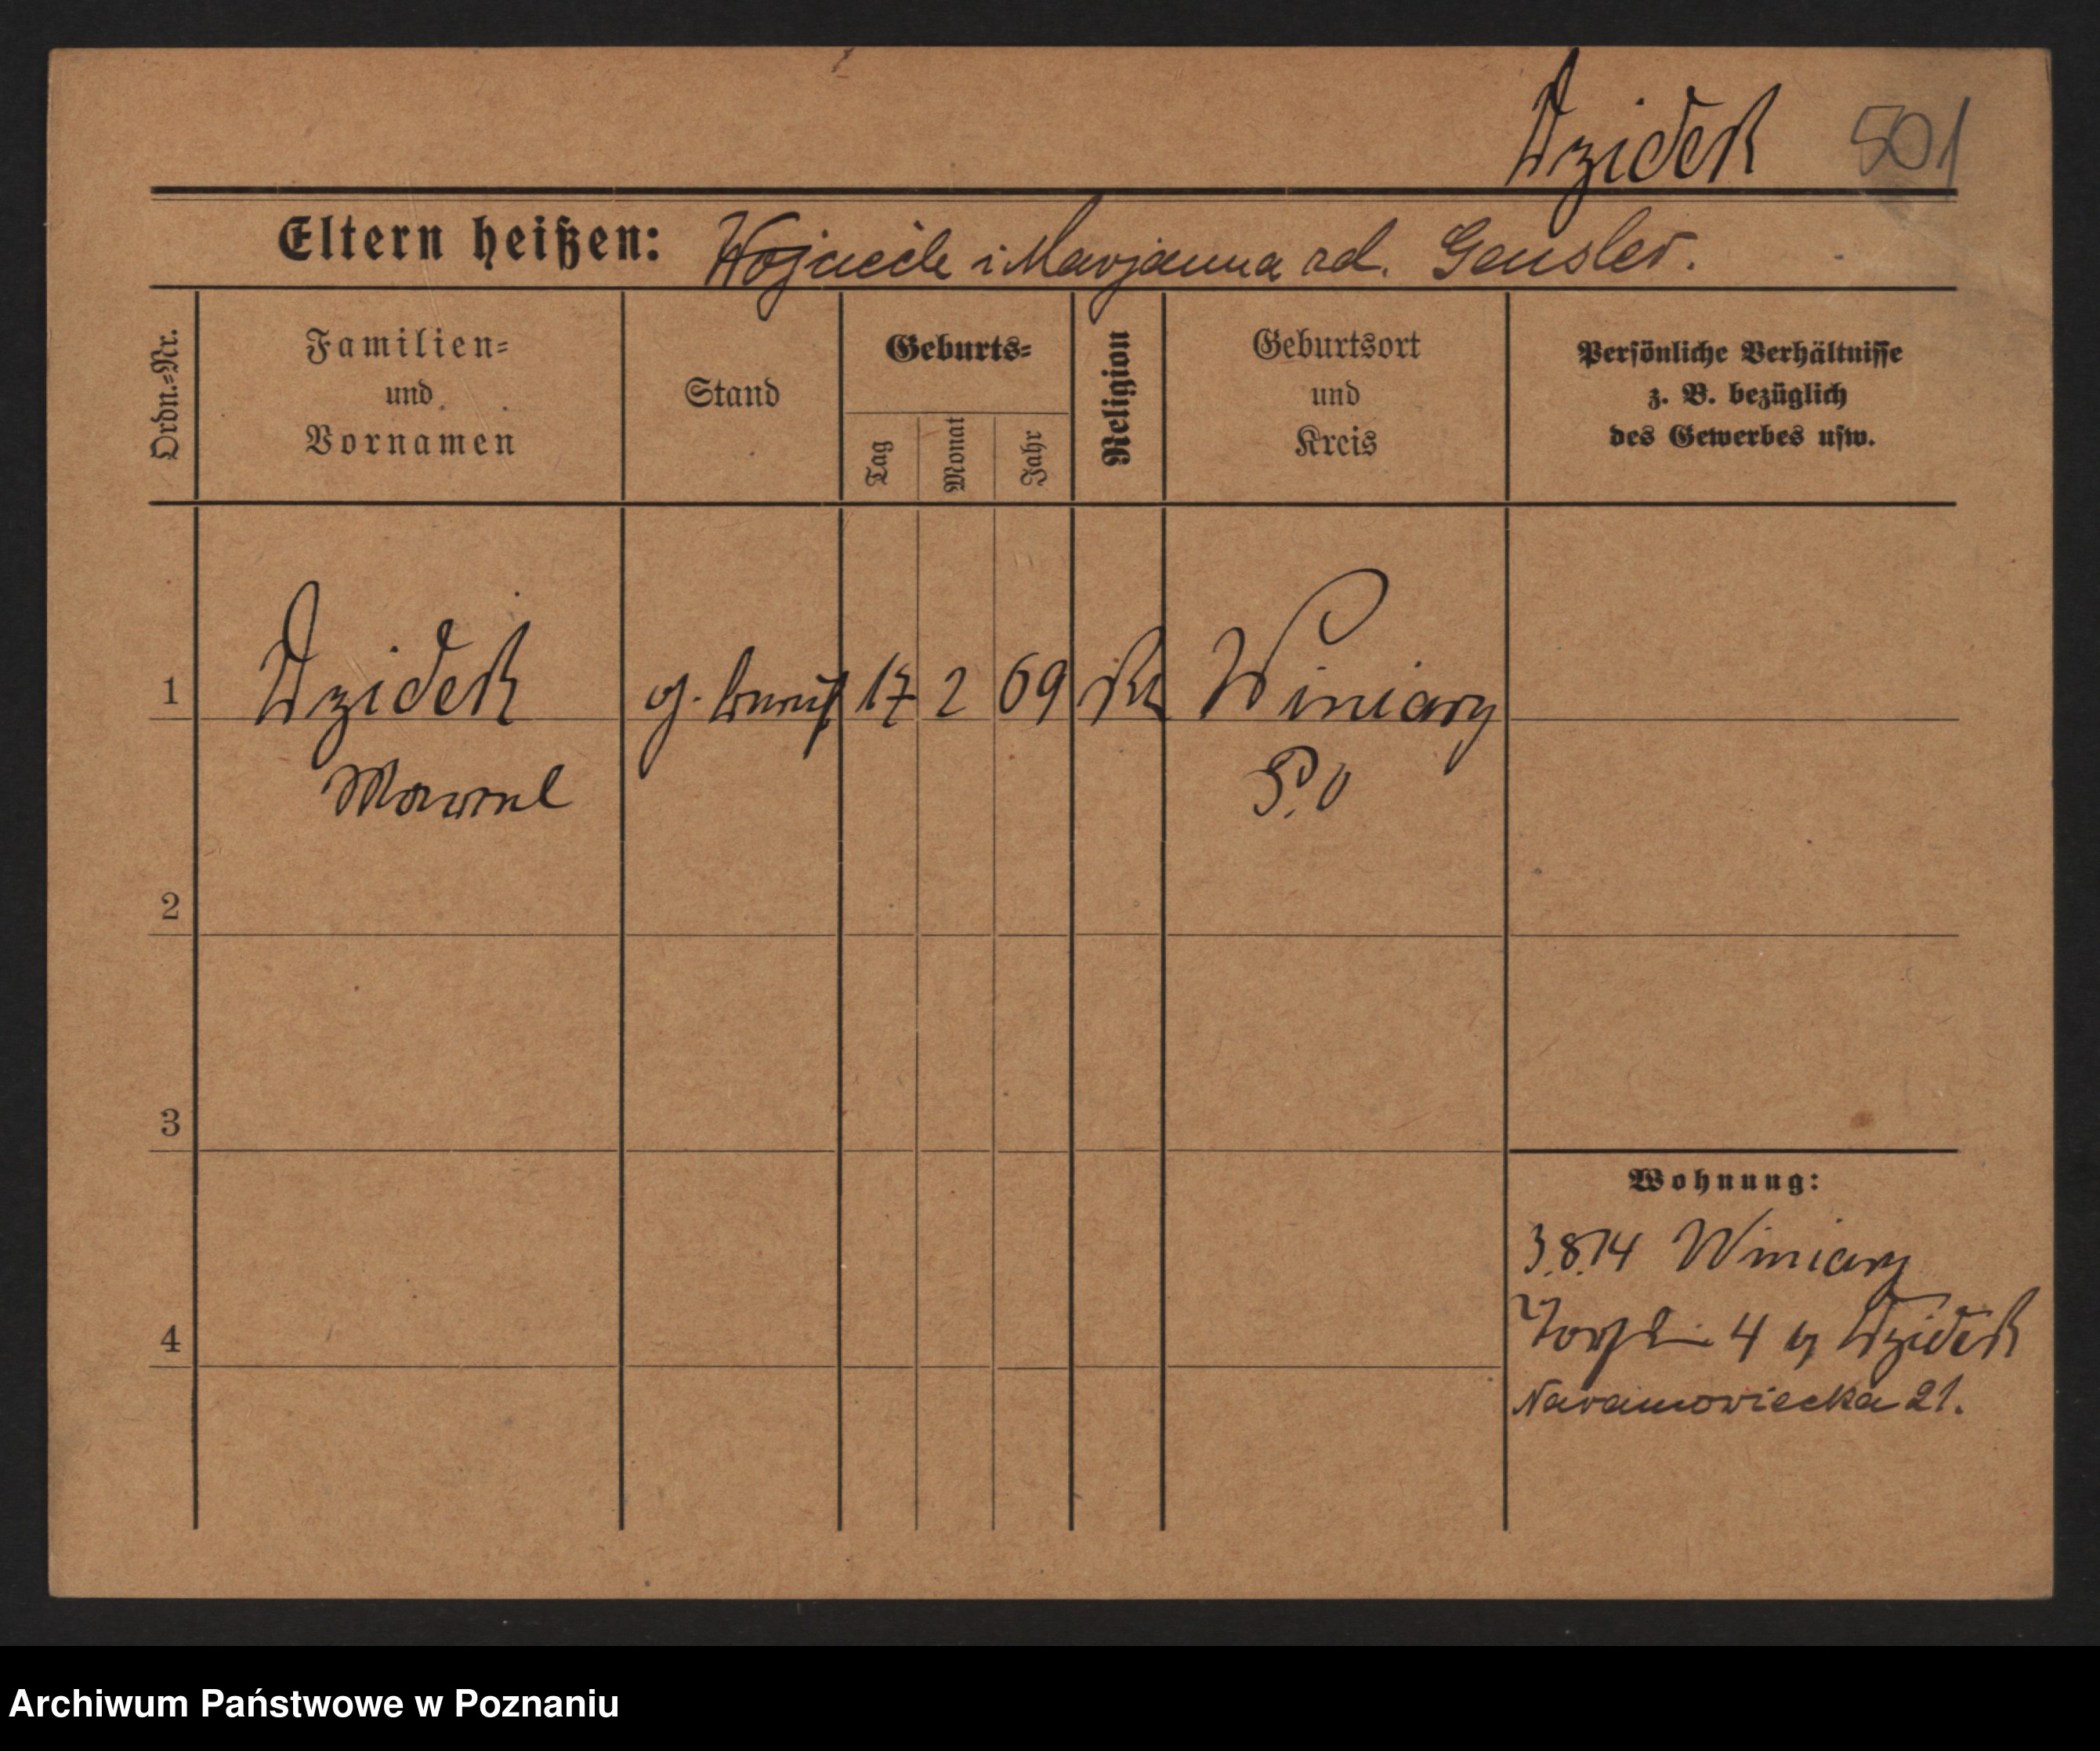 Dzidek 501
Eltern heißen: Wojciech i Marjanna rd. Gensler.
Ordn.-Nr.
Familien-
und
Vornamen
Stand
Geburts-
Tag
Monat
Jahr
Religion
Geburtsort
und
Kreis
Persönliche Verhältnisse
z. B. bezüglich
des Gewerbes usw.
1 Dzidek 17 2 69 Winiary
P. O
2
3
4
Wohnung:
3.8.14 Winiary
4 Dzidek
Naramowiecka 21.
Archiwum Państwowe w Poznaniu